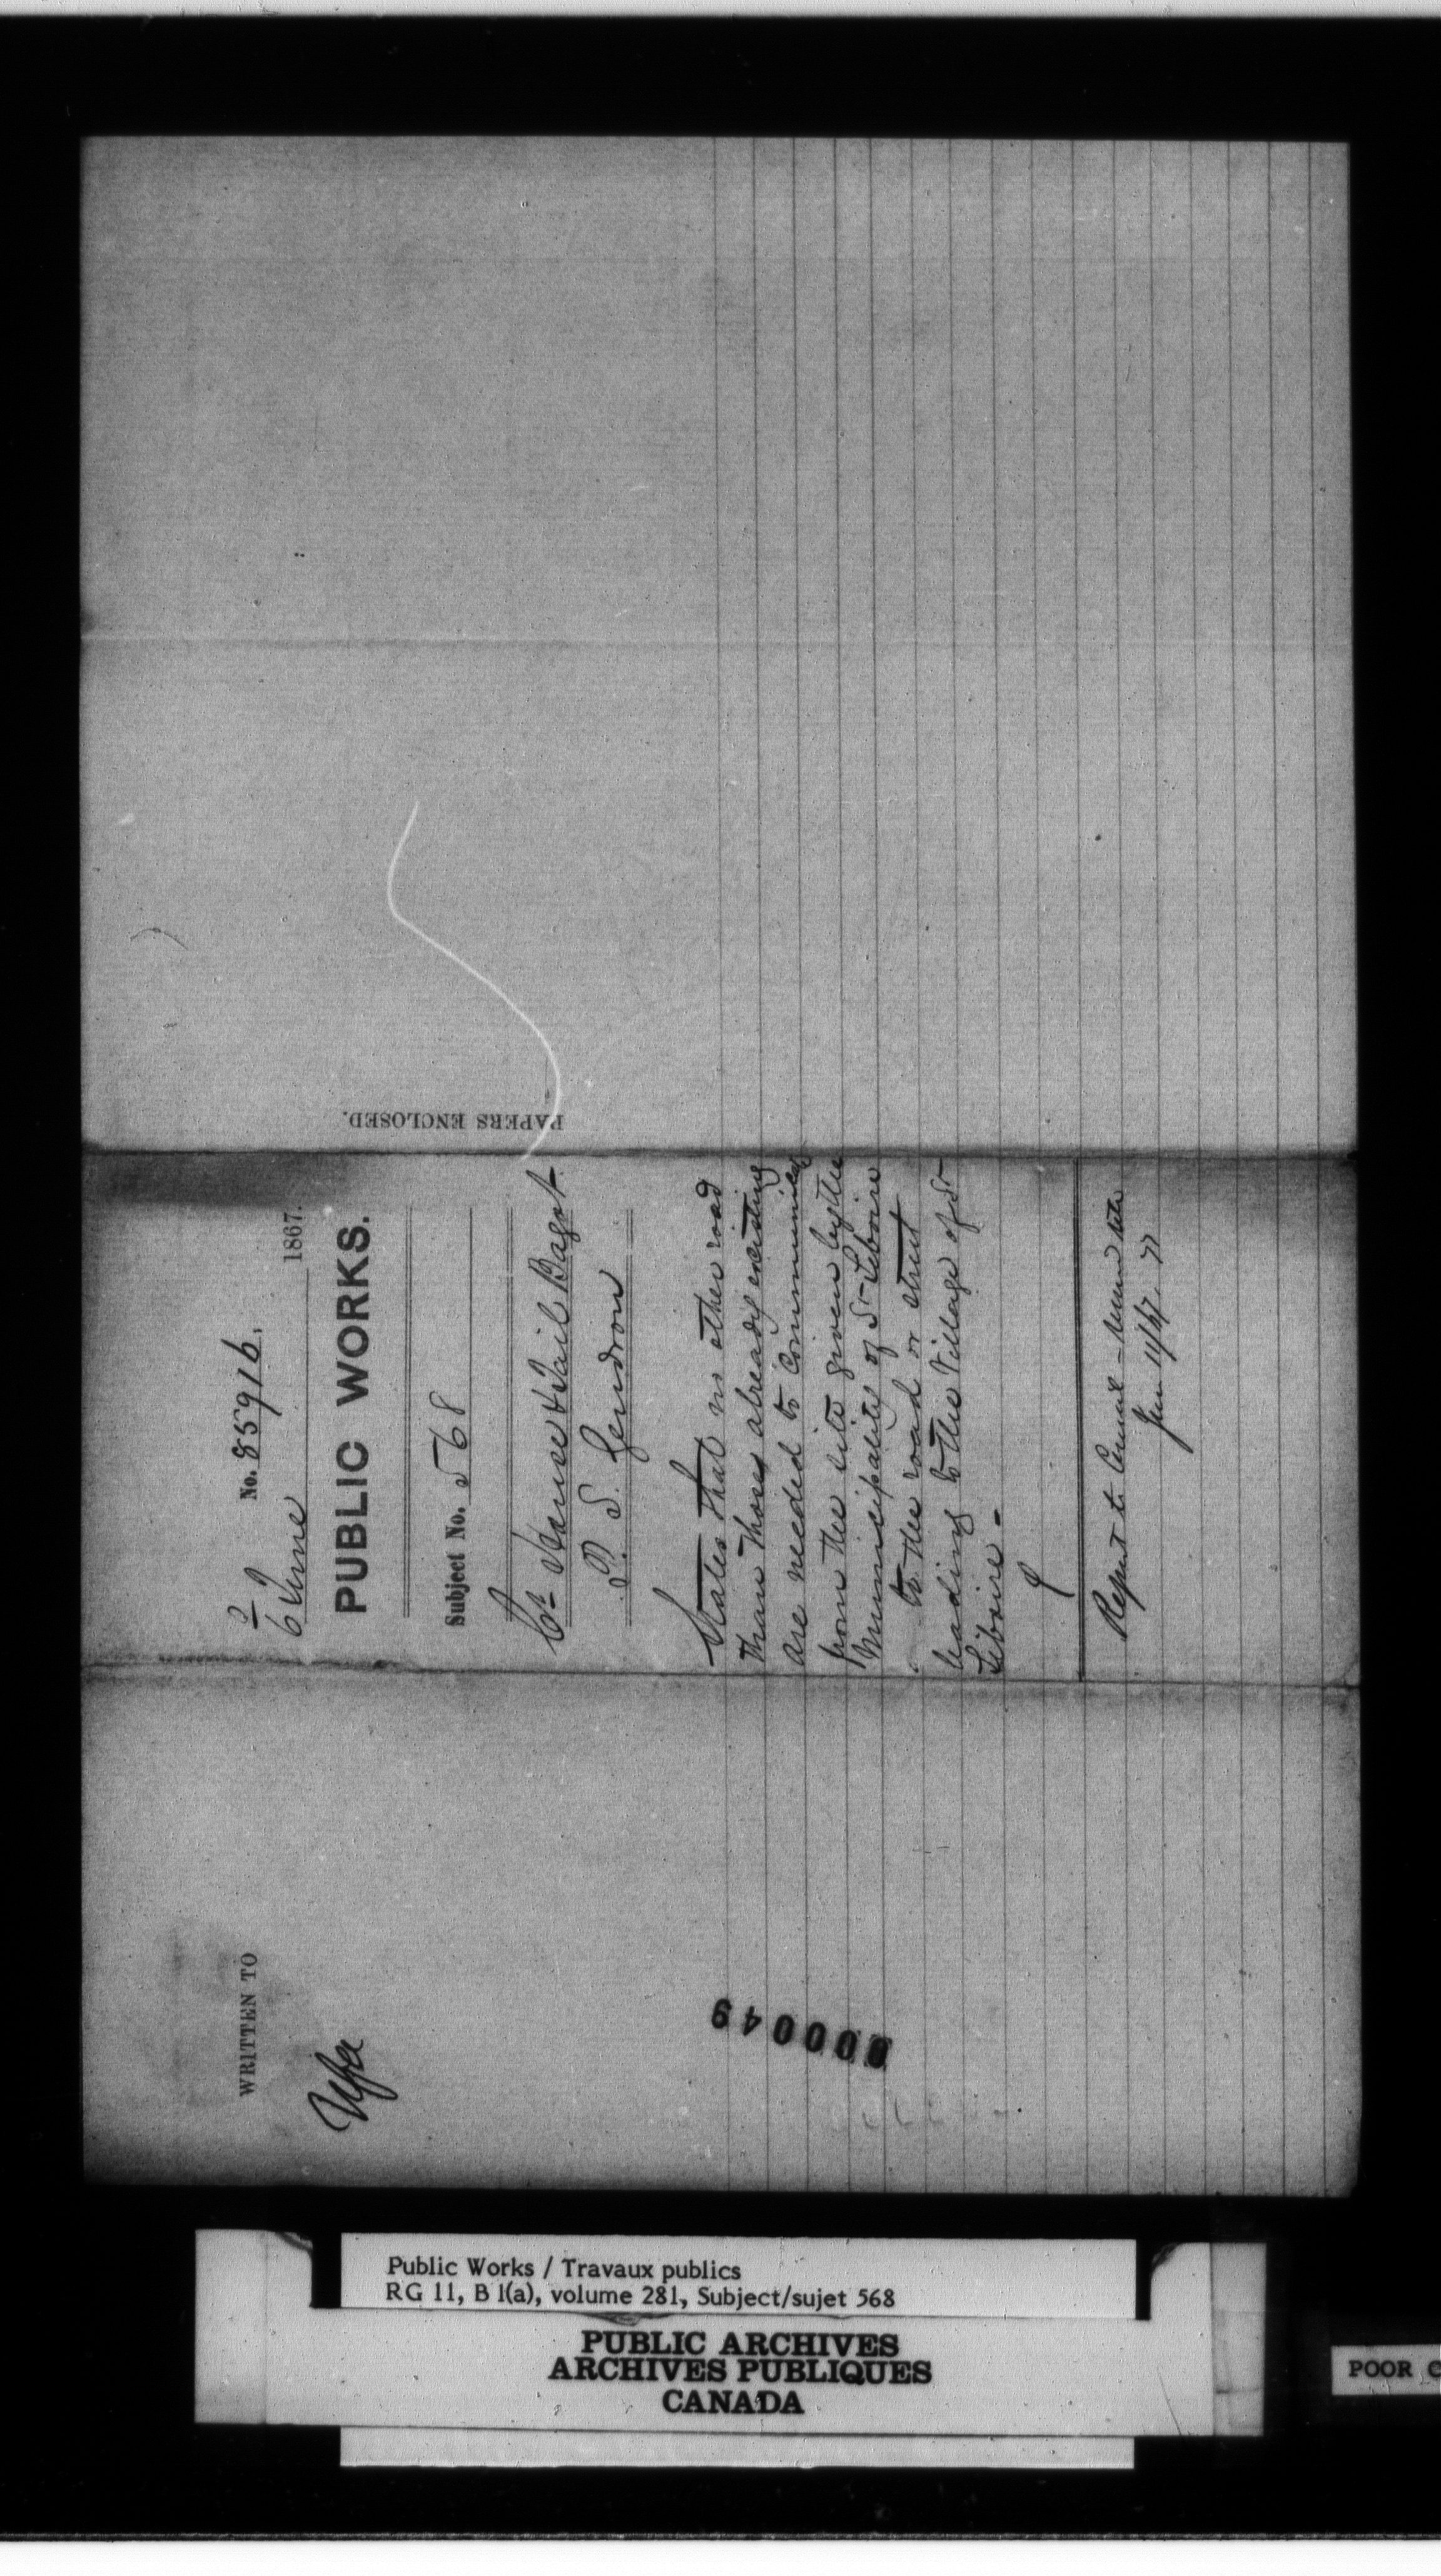 No. 85916.
6 June 1867.
PUBLIC WORKS.
Subject No. 568
Ct. House & Jail Bagot
P. S. Gendron
States that no other road
than those already existing
are needed to communicate
from the site given by the
Municipality of St Liboire
to the road or street
leading to the Village of St
Liboire -
Report to
June 11/67
PAPERS ENCLOSED.
WRITTEN TO
000049
Public Works / Travaux publics
RG 11, B 1(a), volume 281, Subject/sujet 568
PUBLIC ARCHIVES
ARCHIVES PUBLIQUES
CANADA
POOR C